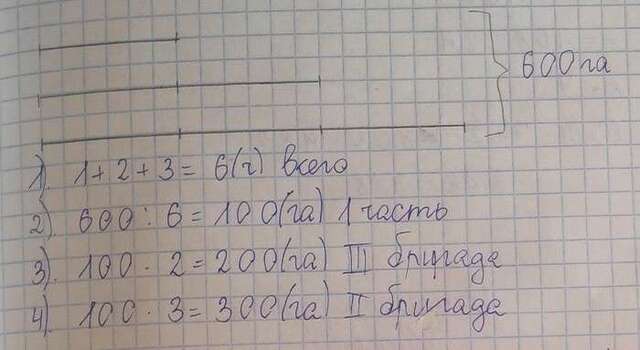 600 га
1) 1 + 2 + 3 = 6(ч) всего
2). 600 : 6 = 100(га) 1 часть
3). 100 · 2 = 200(га) III бригада
4). 100 · 3 = 300(га) II бригада